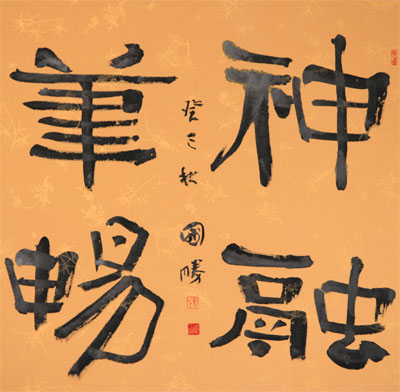 神融
筆暢
癸巳秋
國勝